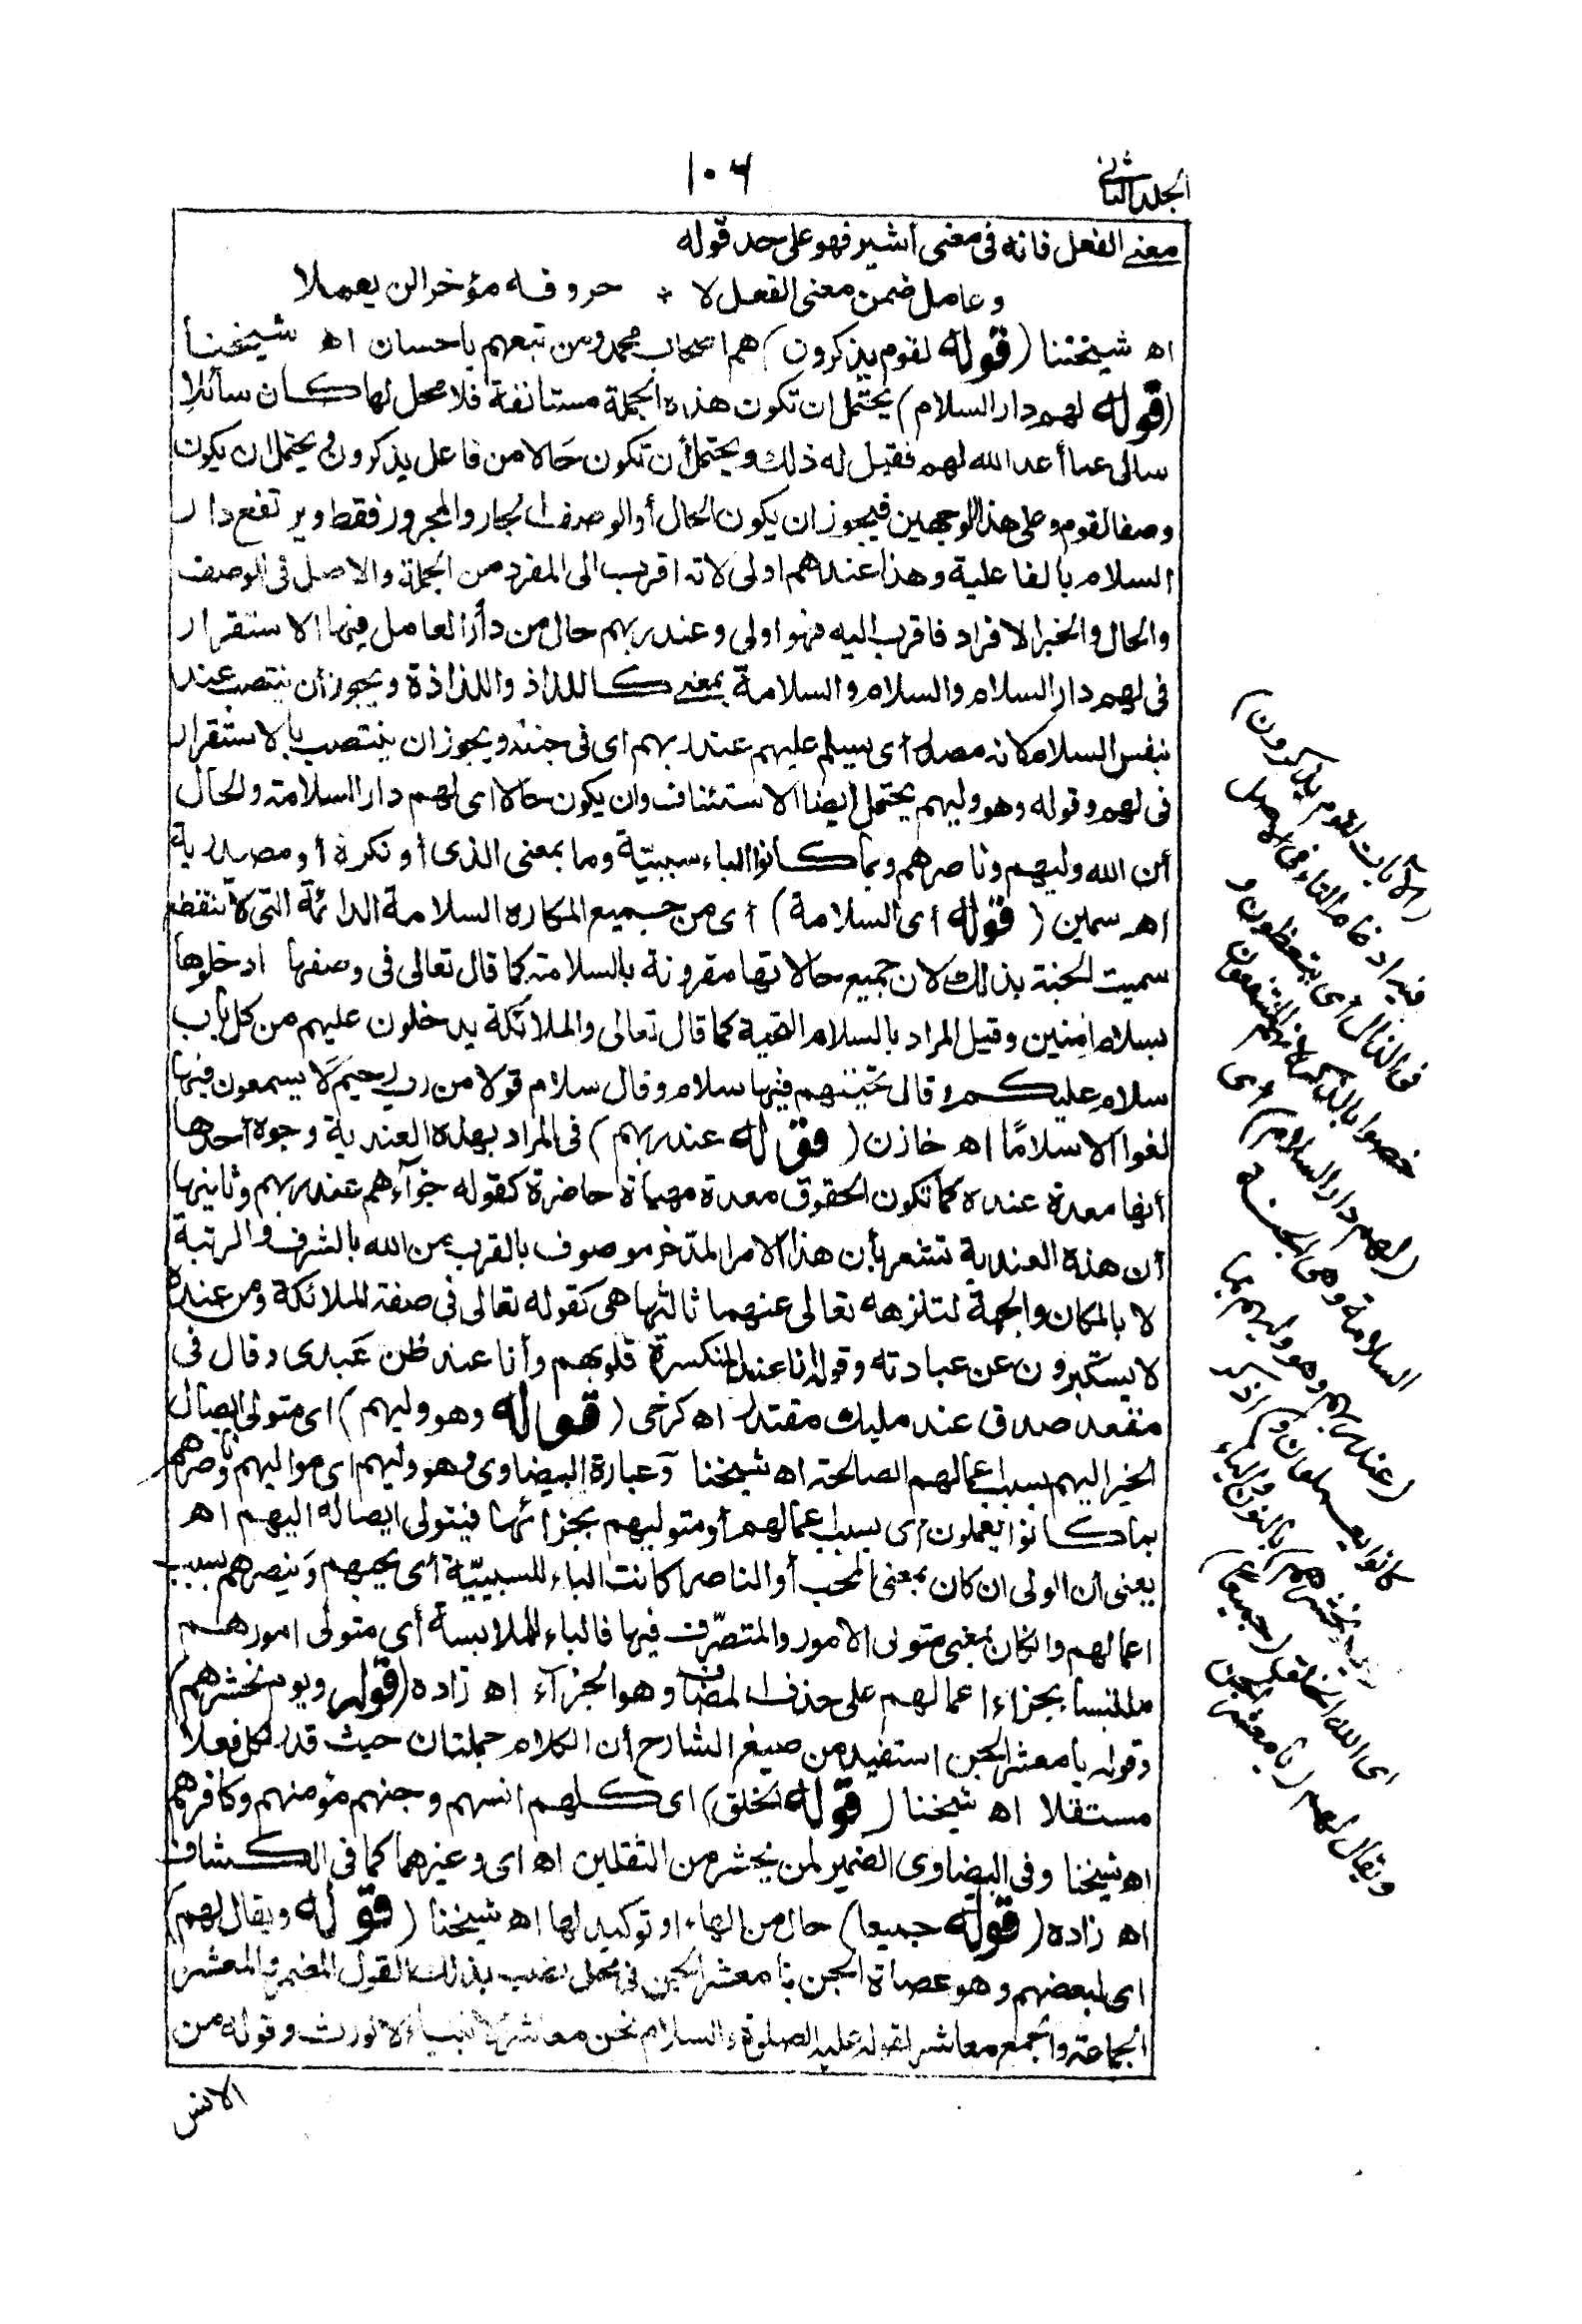 الجلد الثانى
١٠٦
معنى الفعل فانه فى معنى أشير فهو على حد قوله
وعامل ضمن معنى الفعل لا * حروفه مؤخرا لن يعملا
اه شيخنا (قوله لقوم يذكرون) هم اصحاب محمد ومن تبعهم باحسان اه شيخنا
(قوله لهم دار السلام) يحتمل ان تكون هذه الجملة مستانفة فلا محل لها كان سائلا
سال عما أعد الله لهم فقيل له ذلك ويحتمل أن تكون حَالا من فاعل يذكرون ويحتمل ان يكون
وصفا لقوم وعلى هذا الوجهين فيجوز ان يكون الحال أو الوصف الجار والمجرور فقط ويرتفع دار
السلام بالفاعلية وهذا عندهم اولى لانه اقرب الى المفرد من الجملة والاصل فى الوصف
والحال والخبر الافراد فاقرب اليه فهو اولى وعند ربهم حال من دار العامل فيها الاستقرار
فى لهم دار السلام والسلام والسلامة بمعنى كاللذاذ واللذاذة ويجوز أن ينتصب عند
بنفس السلام لانه مصدر أى يسلم عليهم عند ربهم اى فى جنته ويجوز ان ينتصب بالاستقرار
فى لهم وقوله وهو وليهم يحتمل أيضا الاستئناف وان يكون حالا اى لهم دار السلامة والحال
أن الله وليهم وناصرهم وبما كانوا الباء سببيّة وما بمعنى الذى أو نكرة أو مصدرية
اهـ سمين (قوله أى السلامة) أى من جميع المكاره السلامة الدائمة التى لا تنقطع
سميت الجنة بذلك لان جميع حالاتها مقرونة بالسلامة كما قال تعالى فى وصفها ادخلوها
بسلام اٰمنين وقيل المراد بالسلام التحية كما قال تعالى والملائكة يدخلون عليهم من كل باب
سلام عليكم وقال تحيتهم فيها سلام وقال سلام قولا من رب رحيم لا يسمعون فيها
لغوا الا سلامًا اه خازن (قوله عند ربهم) فى المراد بهذه العندية وجوه أحدها
أنها معدة عنده كما تكون الحقوق معدة مهيأة حاضرة كقوله جزآءهم عند ربهم وثانيها
أن هذه العندية تشعر بأن هذا الامر المدّخر موصوف بالقرب من الله بالشرف والرتبة
لا بالمكان والجهة لتنزهه تعالى عنهما ثالثها هى كقوله تعالى فى صفة الملائكة ومن عنده
لا يستكبرون عن عبادته وقوله انا عند المنكسرة قلوبهم وأنا عند ظن عَبدى وقال فى
مقعد صدق عند مليك مقتدر اه كرخى (قوله وهو وليهم) اى متولى ايصال
الخير اليهم بسبب اعمالهم الصالحة اه شيخنا وعبارة البيضاوى وهو وليهم اى مواليهم وناصرهم
بما كانوا يعملون أى بسبب اعمالهم أو متوليهم بجزائها فيتولى ايصاله اليهم اهـ
يعنى أن الولى ان كان بمعنى المحب أو الناصر كانت الباء للسببيّة أى يحبهم وَينصرهم بسبب
اعمالهم وان كان بمعنى متولى الامور والمتصرّف فيها فالباء للملابسة أى متولى امورهم
ملتبسا بجزاء اعمالهم على حذف المضاف وهو الجزآء اه زاده (قوله ويوم نحشرهم)
وقوله يا معشر الجن استفيد من صيغ الشارح أن الكلام جملتان حيث قدر لكل فعلا
مستقلا اه شيخنا (قوله الخلق) اى كلهم انسهم وجنهم مؤمنهم وكافرهم
اه شيخنا وفى البيضاوى الضمير لمن يحشر من الثقلين اه اى وغيرهما كما فى الكشاف
اه زاده (قوله جميعا) حال من الهاء او توكيد لها اه شيخنا (قوله ويقال لهم)
اى لبعضهم وهو عصاة الجن يا معشر الجن فى محل نصب بذلك القول المضمر والمعشر
الجماعة والجمع معاشر لقوله عليه الصلوة والسلام نحن معاشر الانبياء لا نورث وقوله من
الانس
الآيات لقوم يذكرون)
فيه ادغام التاء فى الاصل
فى الذال أى يتعظون و
خصوا بالذكر لانهم المنتفعون
(لهم دار السلام) أى
السلامة وهى الجنة
(عند ربهم وهو وليهم بما
كانوا يعملون و) اذكر
(يوم نحشرهم) بالنون والياء
اى الله الخلق (جميعا)
ويقال لهم (يا معشر الجن